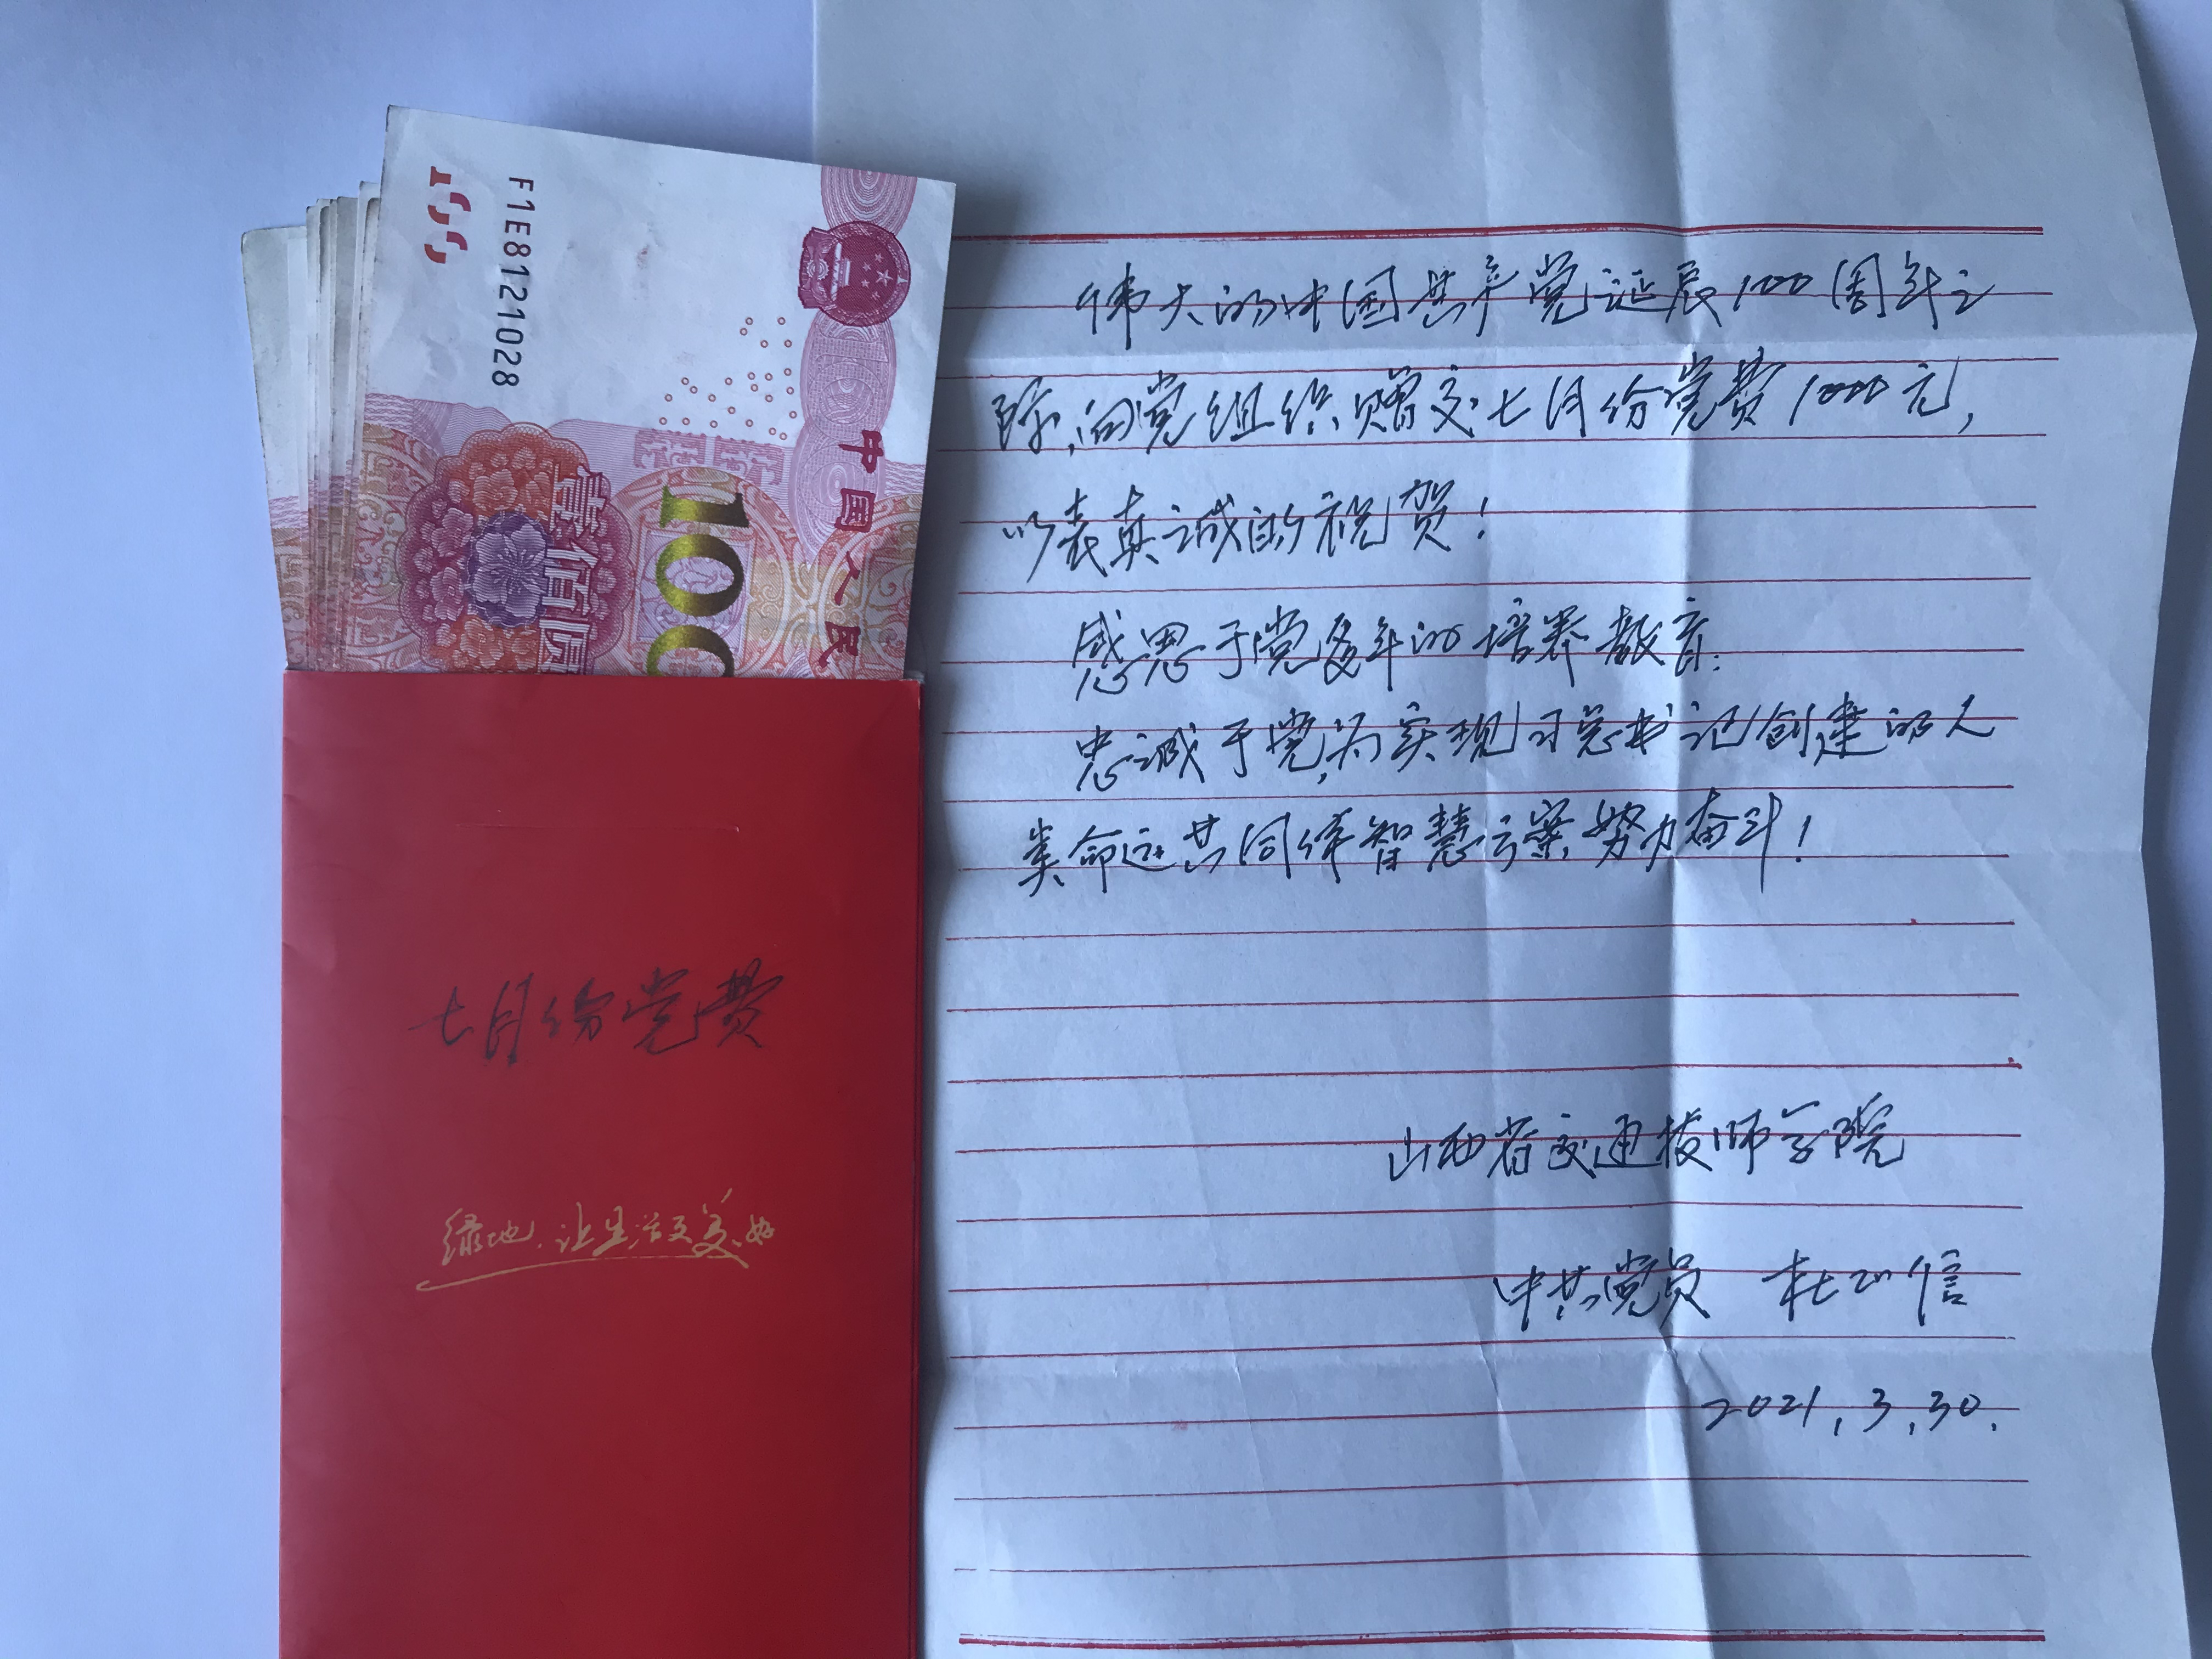 F1E8121028
100
中国人民
壹佰圆
100
七月份党费
绿地，让生活更美好
伟大的中国共产党诞辰100周年之
际，向党组织赠交七月份党费1000元，
以表真诚的祝贺！
感恩于党多年的培养教育；
忠诚于党，为实现习总书记创建的人
类命运共同体智慧方案努力奋斗！
山西省交通技师学院
中共党员 杜 信
2021.3.30.